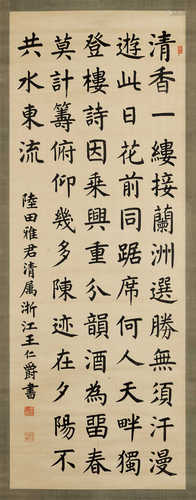 清香一縷接蘭洲選勝無須汗漫
遊此日花前同踞席何人天畔獨
登樓詩因乘興重分韻酒為畱春
莫計籌俯仰幾多陳迹在夕陽不
共水東流
陸田雅君清属浙江王仁爵書